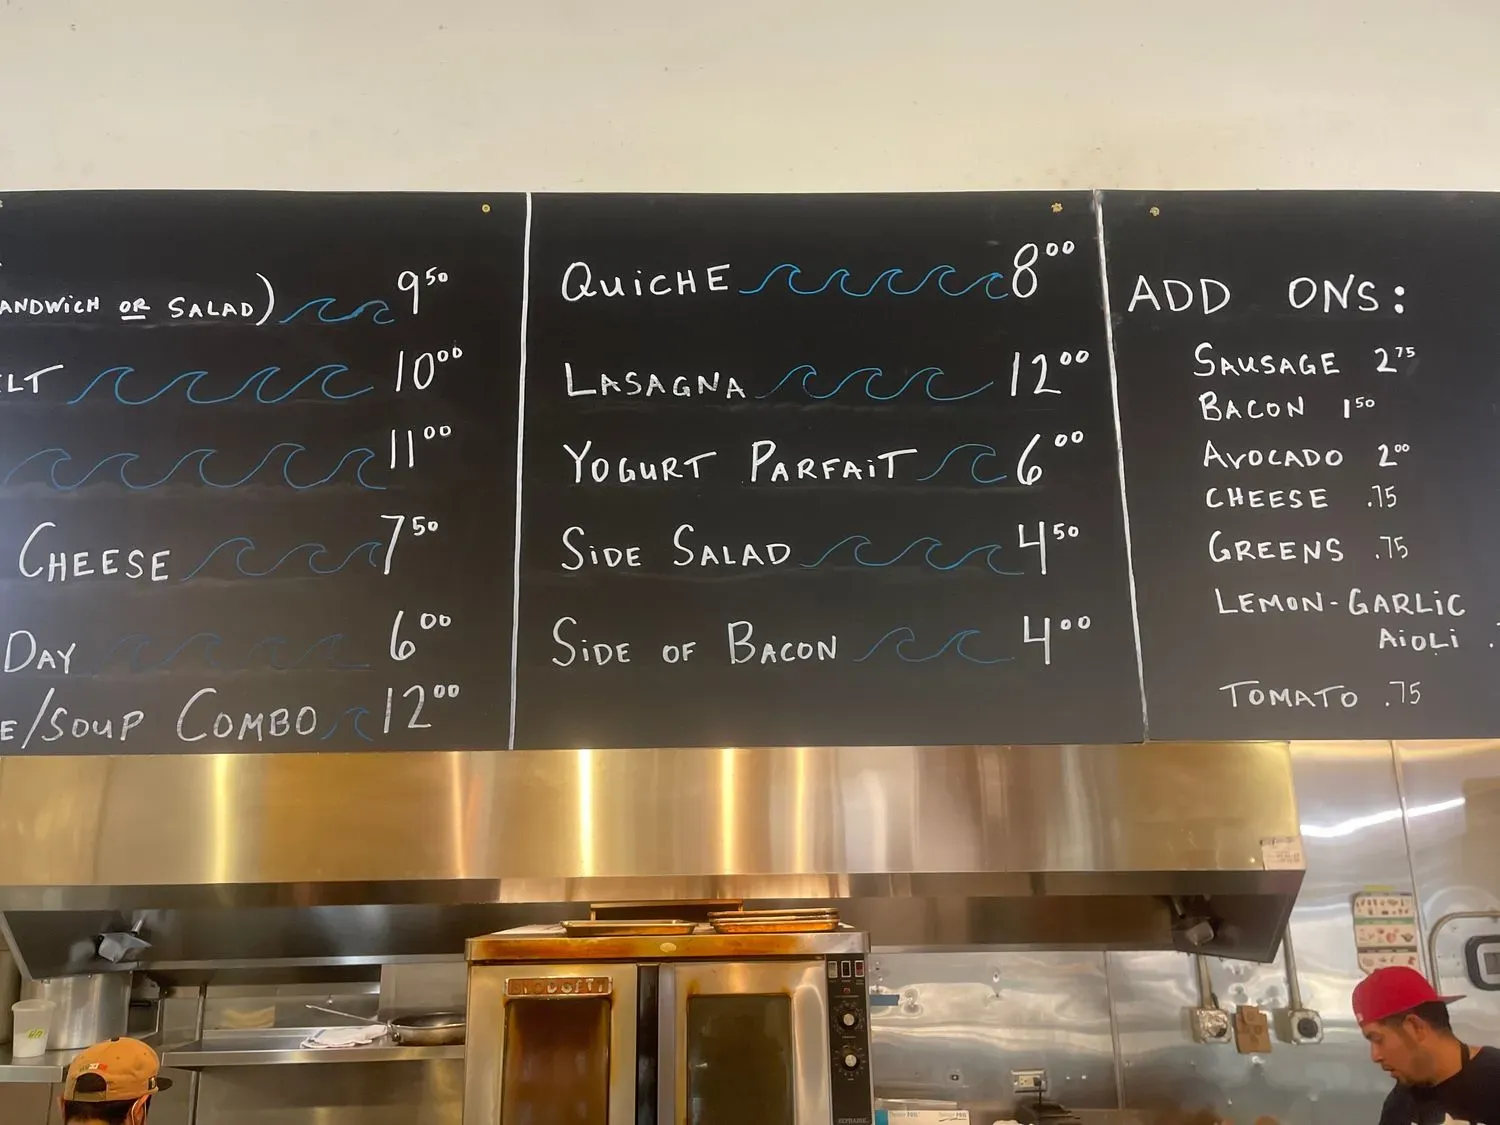 ANDWICH OR SALAD) 9⁵⁰
ELT 10⁰⁰
11⁰⁰
CHEESE 7⁵⁰
DAY 6⁰⁰
E/SOUP COMBO 12⁰⁰
QUICHE 8⁰⁰
LASAGNA 12⁰⁰
YOGURT PARFAIT 6⁰⁰
SIDE SALAD 4⁵⁰
SIDE OF BACON 4⁰⁰
ADD ONS:
SAUSAGE 2⁷⁵
BACON 1⁵⁰
AVOCADO 2⁰⁰
CHEESE .75
GREENS .75
LEMON-GARLIC
AIOLI
TOMATO .75
BLODGETT